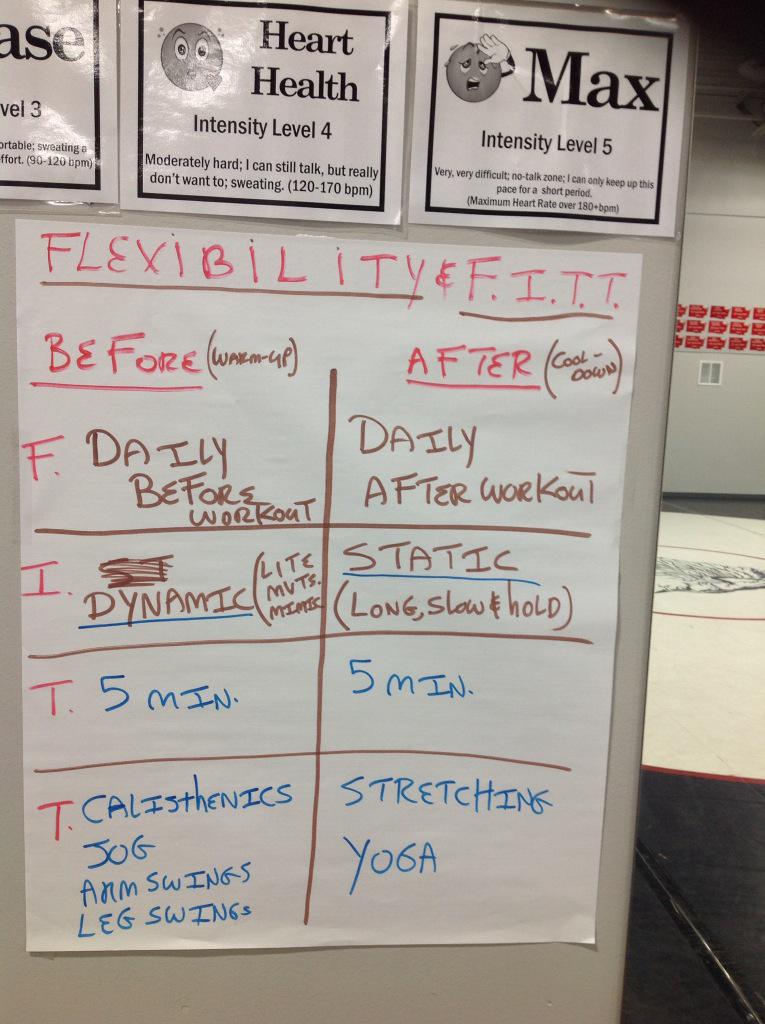 ase
vel 3
ortable; sweating a
ffort. (90-120 bpm)
Heart
Health
Intensity Level 4
Moderately hard; I can still talk, but really
don't want to; sweating. (120-170 bpm)
Max
Intensity Level 5
Very, very difficult; no-talk zone; I can only keep up this
pace for a short period.
(Maximum Heart Rate over 180+bpm)
FLEXIBILITY & F.I.T.T.
BEFORE (WARM-UP)
AFTER (COOL-
DOWN)
F. DAILY
BEFORE
WORKOUT
DAILY
AFTER WORKOUT
I. DYNAMIC (LITE
MVTS.
MIMIC)
STATIC
(LONG, SLOW & hOLD)
T. 5 MIN.
5 MIN.
T. CALISThENICS
JOG
ARM SWINGS
LEG SWINGS
STRETCHING
YOGA